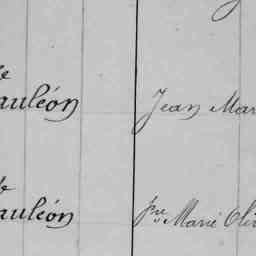 de
auléon Jean Mar
de
auléon Jne Marie Oliv